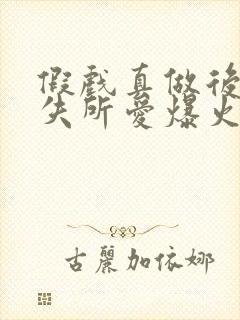 假戲真做後
失所愛爆火
古麗加依娜